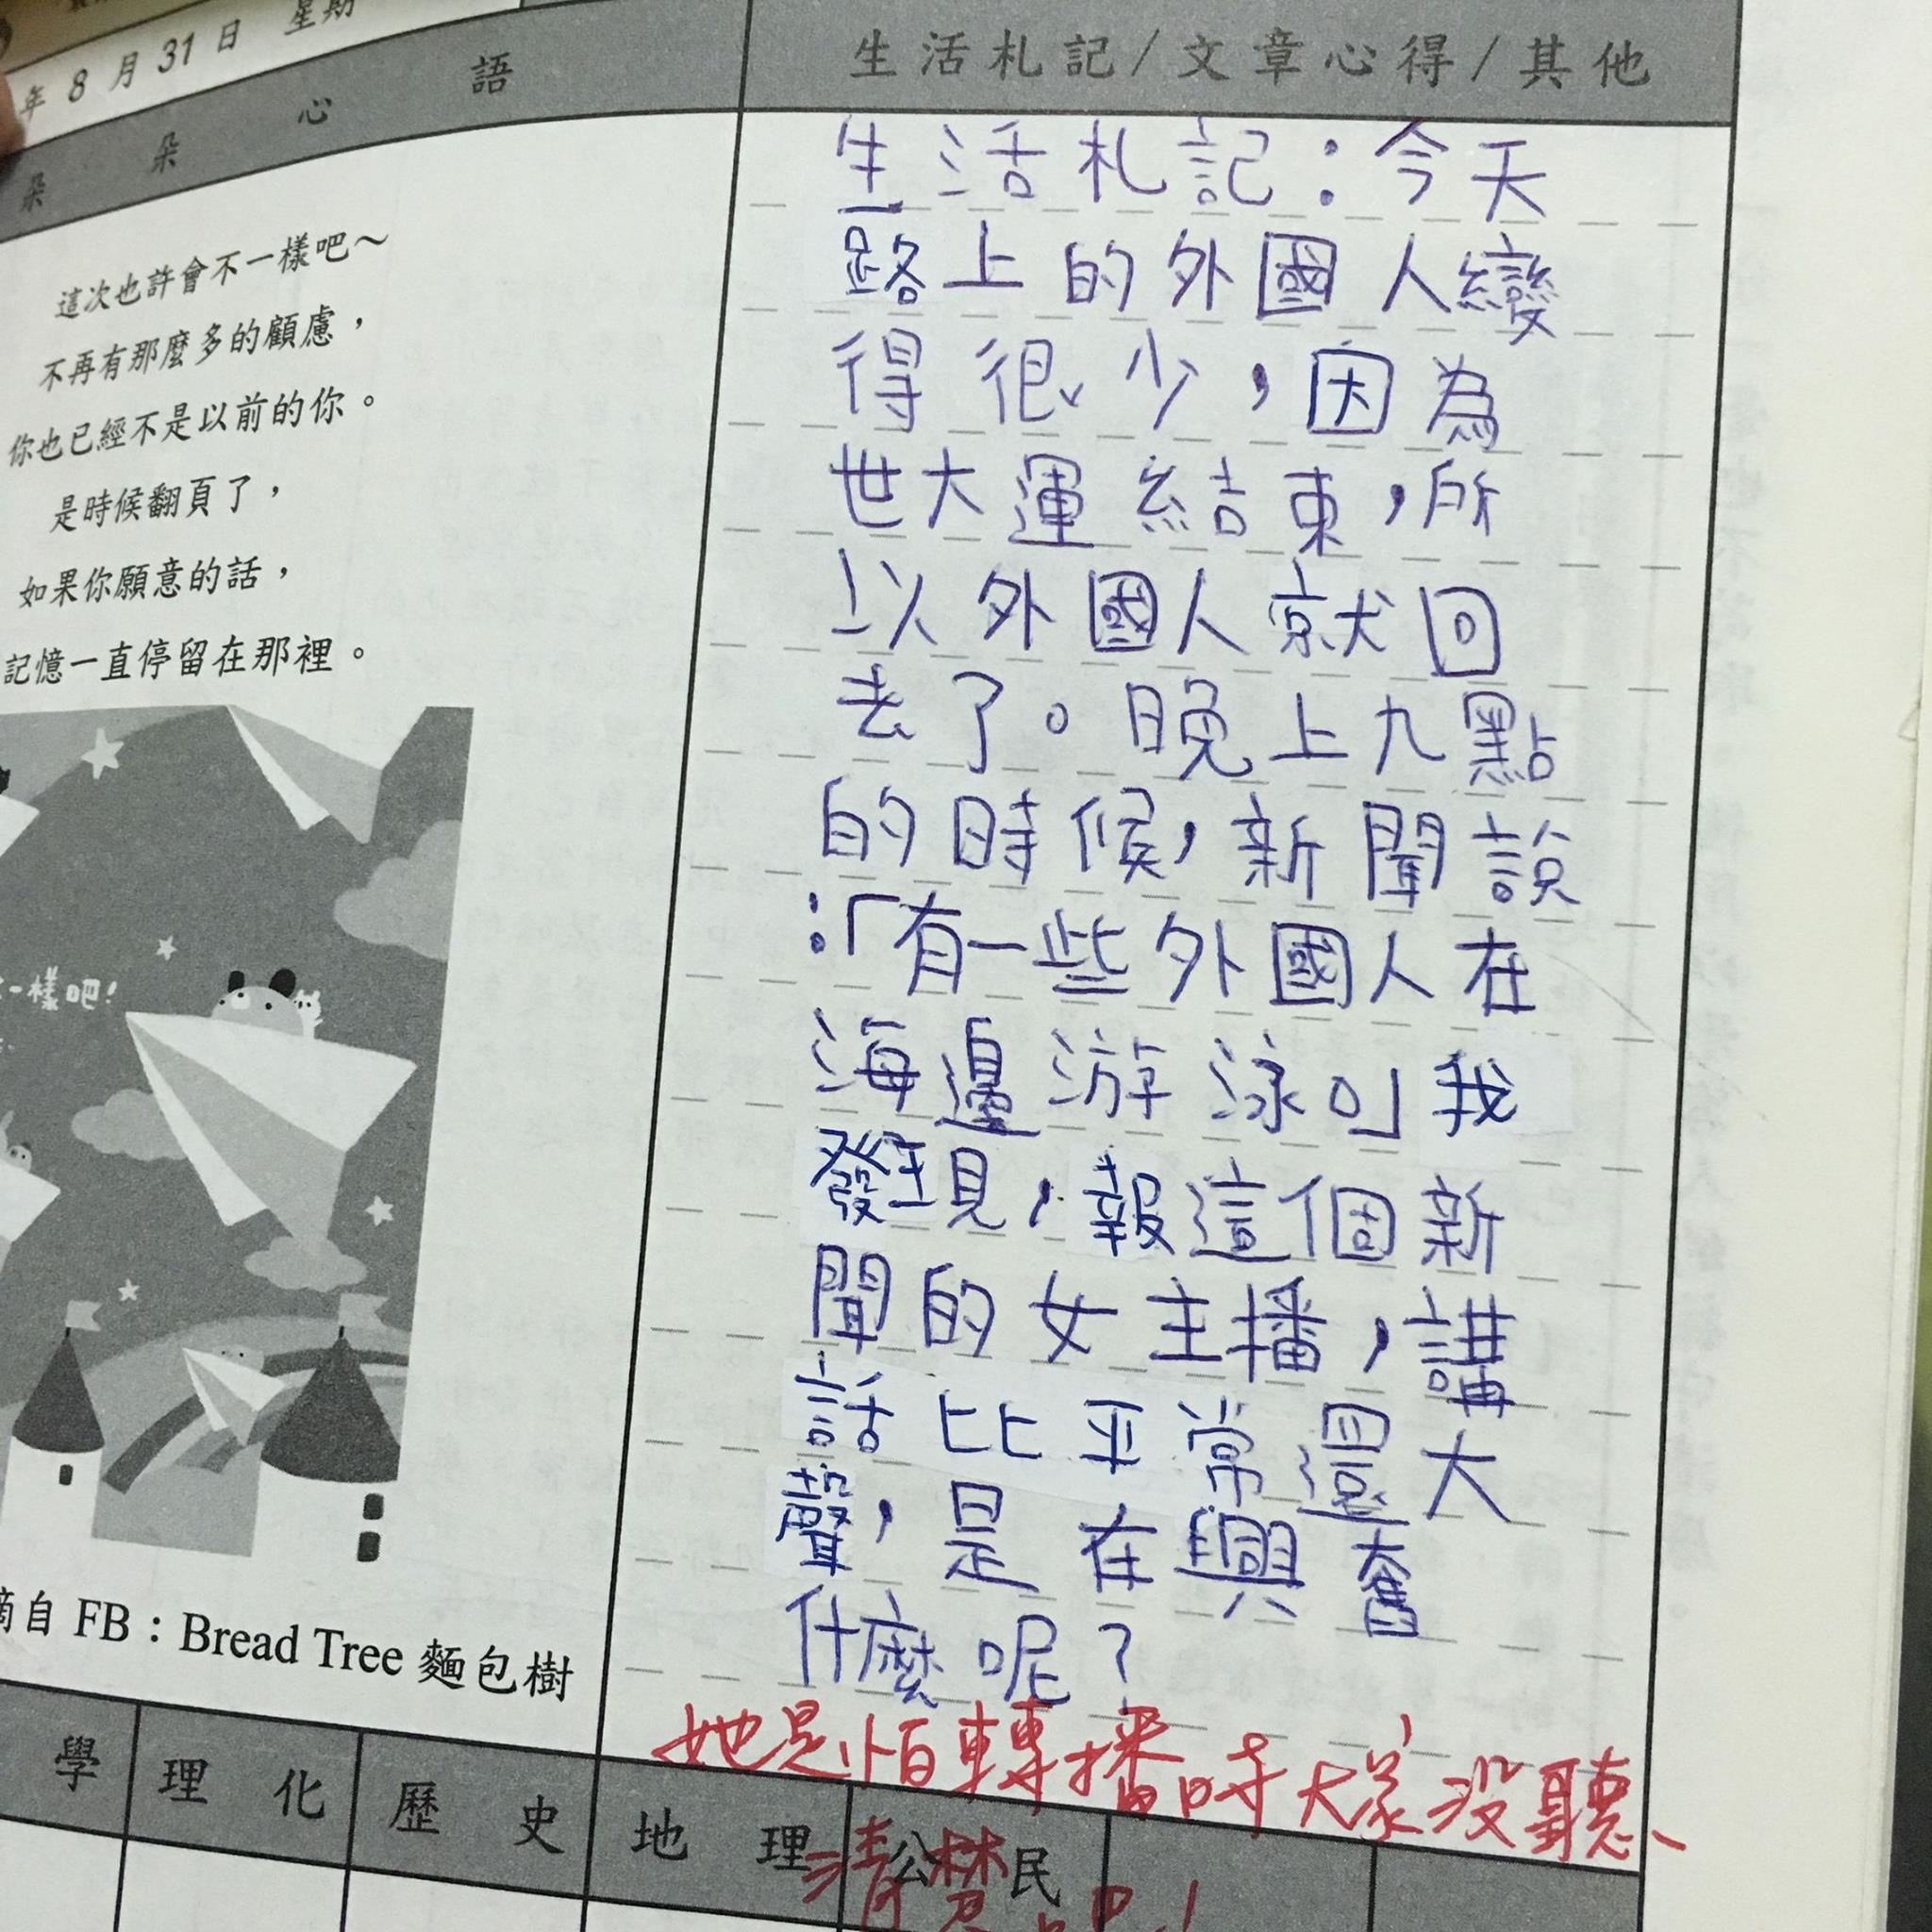 年 8 月 31 日 星期
朵 朵 心 語
這次也許會不一樣吧～
不再有那麼多的顧慮，
你也已經不是以前的你。
是時候翻頁了，
如果你願意的話，
記憶一直停留在那裡。
一樣吧!
摘自 FB：Bread Tree 麵包樹
生活札記/文章心得/其他
生活札記：今天
路上的外國人變
得很少，因為
世大運結束，所
以外國人就回
去了。晚上九點
的時候，新聞說
：「有一些外國人在
海邊游泳。」我
發現，報這個新
聞的女主播，講
話比平常還大
聲，是在興奮
什麼呢？
她是怕轉播時大家沒聽
清楚吧！
學 理 化 歷 史 地 理 公 民